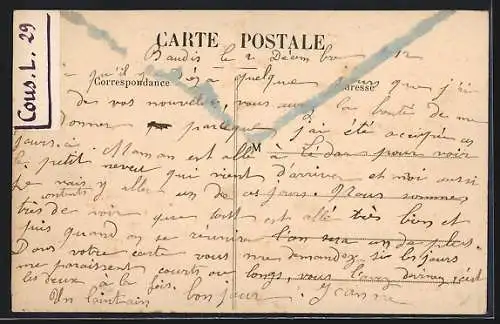 Cous. L. 29
CARTE POSTALE
Baudis le 2 Décembre 12
qu'il y déja quelque jours que j'ai
Correspondance Adresse
de vos nouvelles, vous aurez la bonté de me
donner parceque j'ai été occupée ces
jours-ci Maman est allé à Lédar pour voir
M
le petit neveu qui vient d'arriver et moi aussi
je vais y aller un de ces jours. Nous sommes
contents
très de voir que tout est allé très bien et
puis quand on se réunira l'on sera un de plus.
Dans votre carte vous me demandez si les jours
me paraissent courts ou longs, vous
les deux à la fois.
Un lointain bonjour. Jeanne